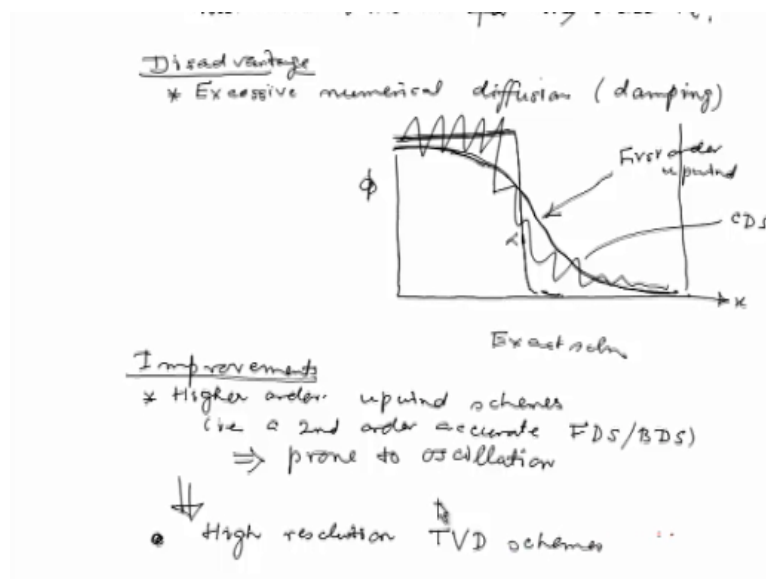 Disadvantage
* Excessive numerical diffusion (damping)
First order
upwind
φ
CDS
x
Exact soln
Improvements
* Higher order upwind schemes
(ie a 2nd order accurate FDS/BDS)
⇒ prone to oscillation
• High resolution TVD schemes